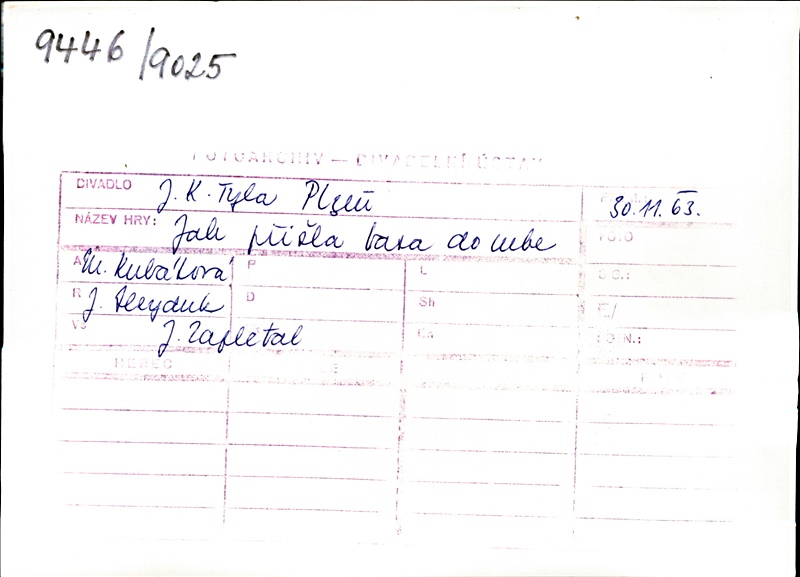 9446/9025
FOTOARCHIV — DIVADELNÍ ÚSTAV
DIVADLO J. K. Tyla Plzeň 30.11.63.
NÁZEV HRY: Jak přišla basa do nebe FOTO
A M. Kubátová P L
R J. D Sh
Vš J. Zapletal
HEREC